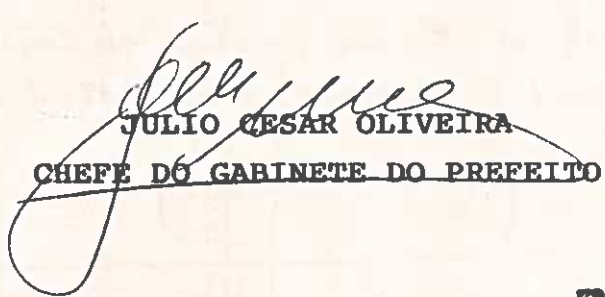 JULIO CESAR OLIVEIRA
CHEFE DO GABINETE DO PREFEITO